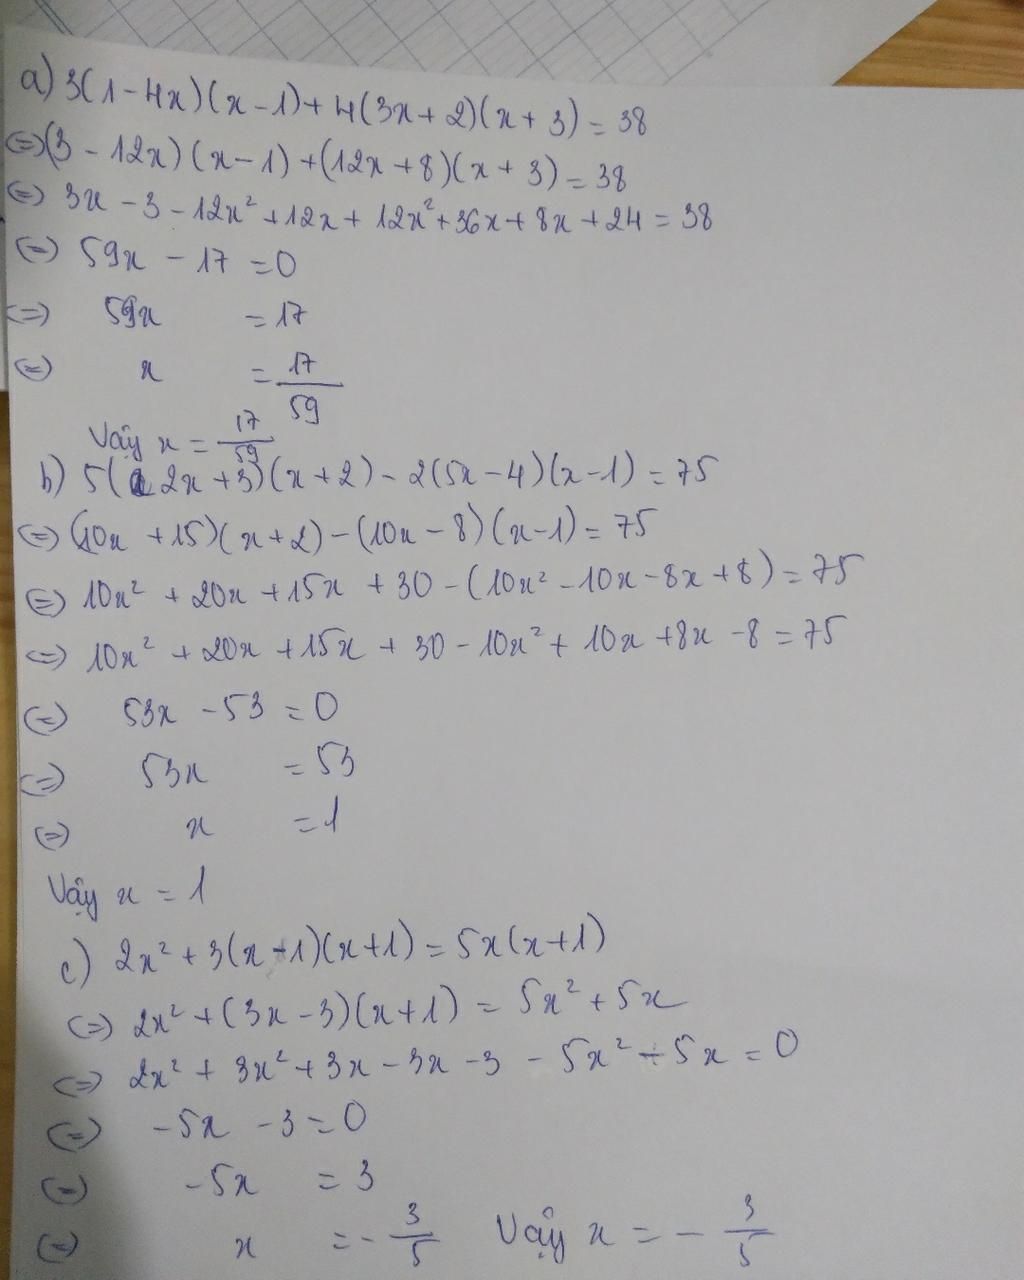 a) 3(1-4x)(x-1)+4(3x+2)(x+3)=38
<=>(3-12x)(x-1)+(12x+8)(x+3)=38
<=> 3x-3-12x²+12x+12x²+36x+8x+24=38
<=> 59x-17=0
<=> 59x =17
<=> x = 17/59
Vậy x = 17/59
b) 5(2x+3)(x+2)-2(5x-4)(x-1)=75
<=> (10x+15)(x+2)-(10x-8)(x-1)=75
<=> 10x²+20x+15x+30-(10x²-10x-8x+8)=75
<=> 10x²+20x+15x+30-10x²+10x+8x-8=75
<=> 53x-53=0
<=> 53x =53
<=> x =1
Vậy x=1
c) 2x²+3(x-1)(x+1)=5x(x+1)
<=> 2x²+(3x-3)(x+1)=5x²+5x
<=> 2x²+3x²+3x-3x-3-5x²-5x=0
<=> -5x-3=0
<=> -5x =3
<=> x =-3/5 Vậy x=-3/5